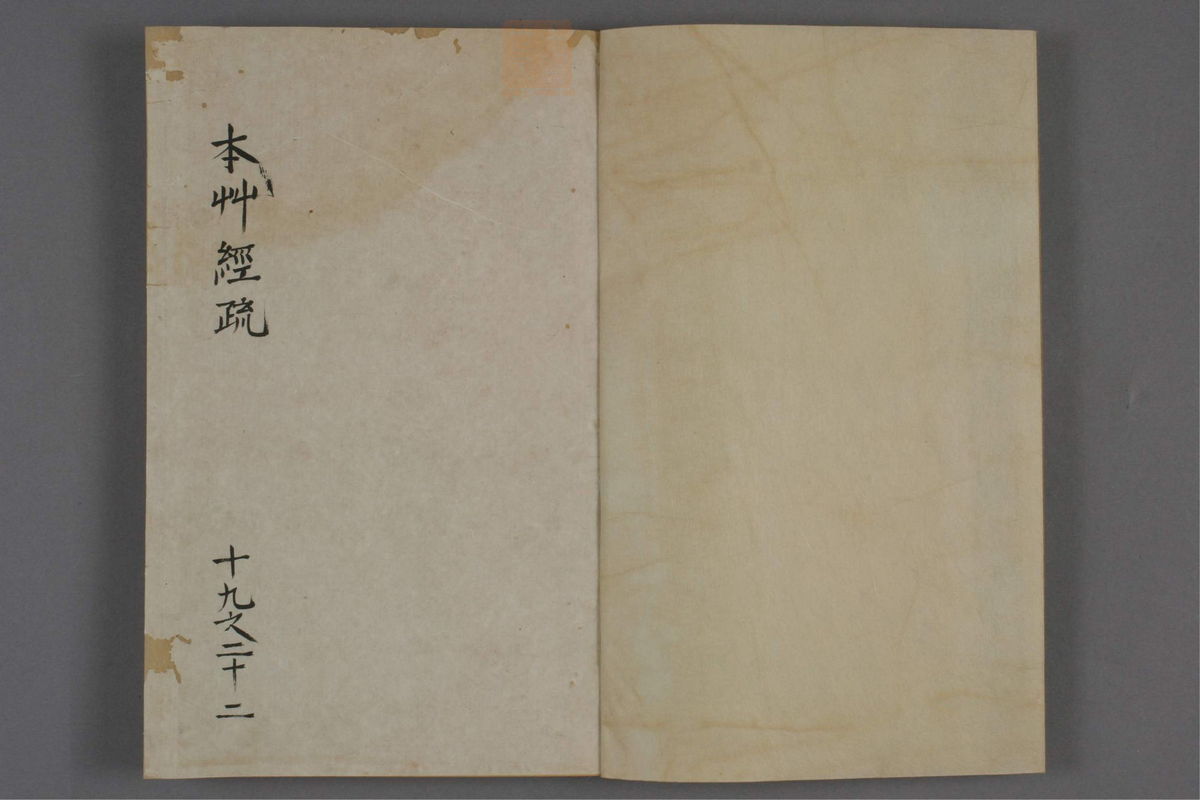 本艸經疏
十九之二十二